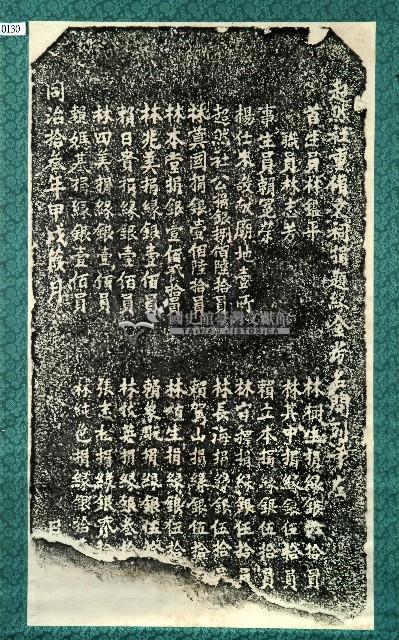 0130
超然社重修文祠捐題緣金芳名開列于左
首生員林鑑平
職員林志芳
事生員賴冠榮
楊仕 敬獻廟地壹所
超然社公捐銀捌佰陸拾員
林奠國捐銀壹佰陸拾員
林本堂捐銀壹佰貳拾員
林兆美捐緣銀壹佰員
賴日貴捐緣銀壹佰員
林四美捐緣銀壹佰員
魏媽基捐緣銀壹佰員
林樹生捐緣銀 拾員
林其中捐緣銀伍拾員
賴立本捐緣銀伍拾員
林 捐緣銀伍拾員
林長海捐緣銀伍拾員
賴 山捐緣銀伍拾
林 生捐緣銀伍拾
賴 捐緣銀伍拾
林 英捐緣銀叁拾
張 松捐緣銀 拾
林純邑捐緣銀 拾
同治拾叁年甲戌 月 日
國史館臺灣文獻館
TAIWAN HISTORICA